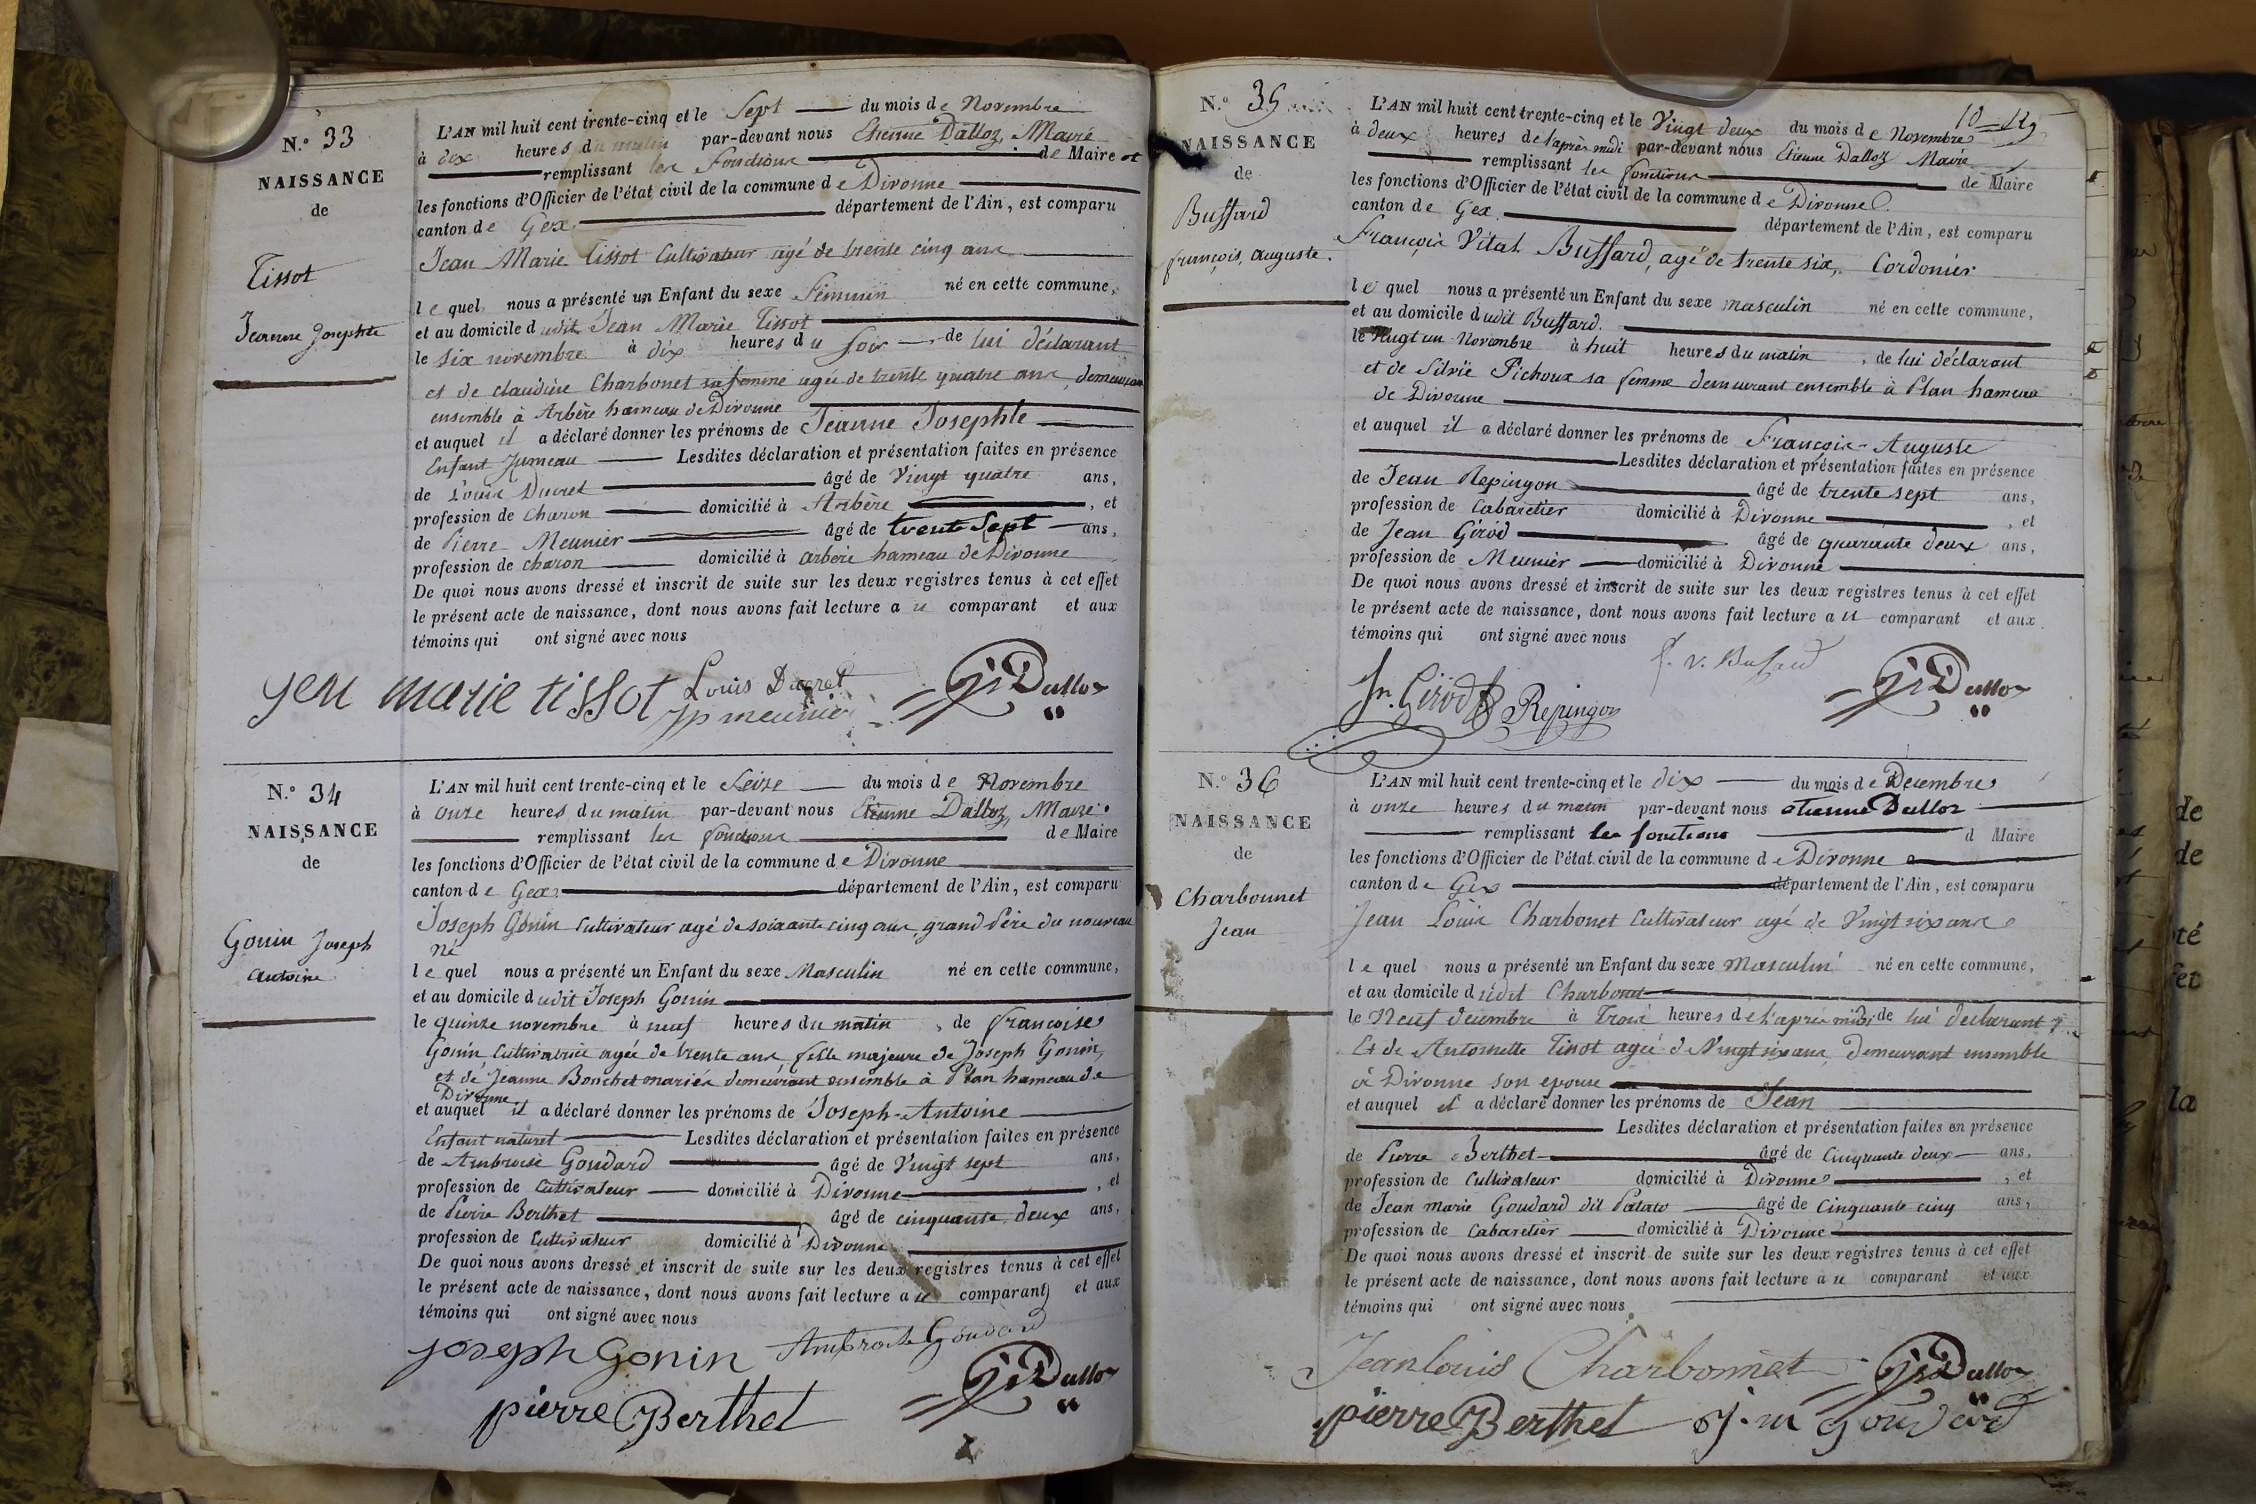 N.º 33
NAISSANCE
de
Tissot
Jeanne Josephte
L'AN mil huit cent trente-cinq et le Sept du mois de Novembre
à dix heures du matin par-devant nous Etienne Dalloz, Maire
remplissant les fonctions de Maire et
les fonctions d'Officier de l'état civil de la commune de Divonne
canton de Gex département de l'Ain, est comparu
Jean Marie Tissot Cultivateur agé de trente cinq ans
lequel nous a présenté un Enfant du sexe Féminin né en cette commune,
et au domicile dudit Jean Marie Tissot
le six novembre à dix heures du soir de lui déclarant
et de claudine Charbonet sa femme agée de trente quatre ans, demeurant
ensemble à Arbère hameau de Divonne
et auquel il a déclaré donner les prénoms de Jeanne Josephte
Enfant Jumeau Lesdites déclaration et présentation faites en présence
de Louis Ducret âgé de Vingt quatre ans,
profession de charon domicilié à Arbère, et
de Pierre Meunier âgé de trente Sept ans,
profession de charon domicilié à arbère hameau de Divonne
De quoi nous avons dressé et inscrit de suite sur les deux registres tenus à cet effet
le présent acte de naissance, dont nous avons fait lecture au comparant et aux
témoins qui ont signé avec nous
jean marie tissot Louis Ducret
jp meunier Dalloz
N.º 34
NAISSANCE
de
Gonin Joseph
antoine
L'AN mil huit cent trente-cinq et le Seize du mois de Novembre
à onze heures du matin par-devant nous Etienne Dalloz, Maire
remplissant les fonctions de Maire
les fonctions d'Officier de l'état civil de la commune de Divonne
canton de Gex département de l'Ain, est comparu
Joseph Gonin Cultivateur agé de soixante cinq ans, grand Père du nouveau
né
lequel nous a présenté un Enfant du sexe Masculin né en cette commune,
et au domicile dudit Joseph Gonin
le quinze novembre à neuf heures du matin, de francoise
Gonin Cultivatrice agée de trente ans fille majeure de Joseph Gonin,
et de Jeanne Bonchet mariés demeurant ensemble à Plan hameau de
Divonne
et auquel il a déclaré donner les prénoms de Joseph-Antoine
Enfant naturel Lesdites déclaration et présentation faites en présence
de Ambroise Goudard âgé de Vingt sept ans,
profession de Cultivateur domicilié à Divonne, et
de Pierre Berthet âgé de cinquante deux ans,
profession de Cultivateur domicilié à Divonne
De quoi nous avons dressé et inscrit de suite sur les deux registres tenus à cet effet
le présent acte de naissance, dont nous avons fait lecture au comparant et aux
témoins qui ont signé avec nous
joseph Gonin Ambroise Goudard
pierre Berthet Dalloz
N.º 35
NAISSANCE
de
Buffard
françois, auguste.
L'AN mil huit cent trente-cinq et le Vingt deux du mois de Novembre
à deux heures de l'après midi par-devant nous Etienne Dalloz Maire
remplissant les fonctions de Maire
les fonctions d'Officier de l'état civil de la commune de Divonne
canton de Gex département de l'Ain, est comparu
François Vital Buffard, agé de trente six, Cordonier
lequel nous a présenté un Enfant du sexe masculin né en cette commune,
et au domicile dudit Buffard.
le Vingt un Novembre à huit heures du matin, de lui déclarant
et de Silvie Pichoux sa femme demeurant ensemble à Plan hameau
de Divonne
et auquel il a déclaré donner les prénoms de François-Auguste
Lesdites déclaration et présentation faites en présence
de Jean Repingon âgé de trente sept ans,
profession de Cabaretier domicilié à Divonne, et
de Jean Girod âgé de quarante deux ans,
profession de Meunier domicilié à Divonne
De quoi nous avons dressé et inscrit de suite sur les deux registres tenus à cet effet
le présent acte de naissance, dont nous avons fait lecture au comparant et aux
témoins qui ont signé avec nous
f. v. Bufard
Jn. Girod Repingon Dalloz
N.º 36
NAISSANCE
de
Charbonnet
Jean
L'AN mil huit cent trente-cinq et le dix du mois de Décembre
à onze heures du matin par-devant nous etienne Dalloz
remplissant les fonctions d Maire
les fonctions d'Officier de l'état civil de la commune de Divonne
canton de Gex département de l'Ain, est comparu
Jean Louis Charbonet Cultivateur agé de Vingt six ans
lequel nous a présenté un Enfant du sexe masculin né en cette commune,
et au domicile dudit Charbonet
le Neuf décembre à Trois heures de l'après midi de lui declarant
Et de Antoinette Tissot agée de Vingt six ans, demeurant ensemble
à Divonne son epouse
et auquel il a déclaré donner les prénoms de Jean
Lesdites déclaration et présentation faites en présence
de Pierre Berthet âgé de Cinquante deux ans,
profession de Cultivateur domicilié à Divonne, et
de Jean marie Goudard dit Patato âgé de Cinquante cinq ans,
profession de Cabaretier domicilié à Divonne
De quoi nous avons dressé et inscrit de suite sur les deux registres tenus à cet effet
le présent acte de naissance, dont nous avons fait lecture au comparant et aux
témoins qui ont signé avec nous
Jean louis Charbonnet Dalloz
pierre Berthet j. m goudard